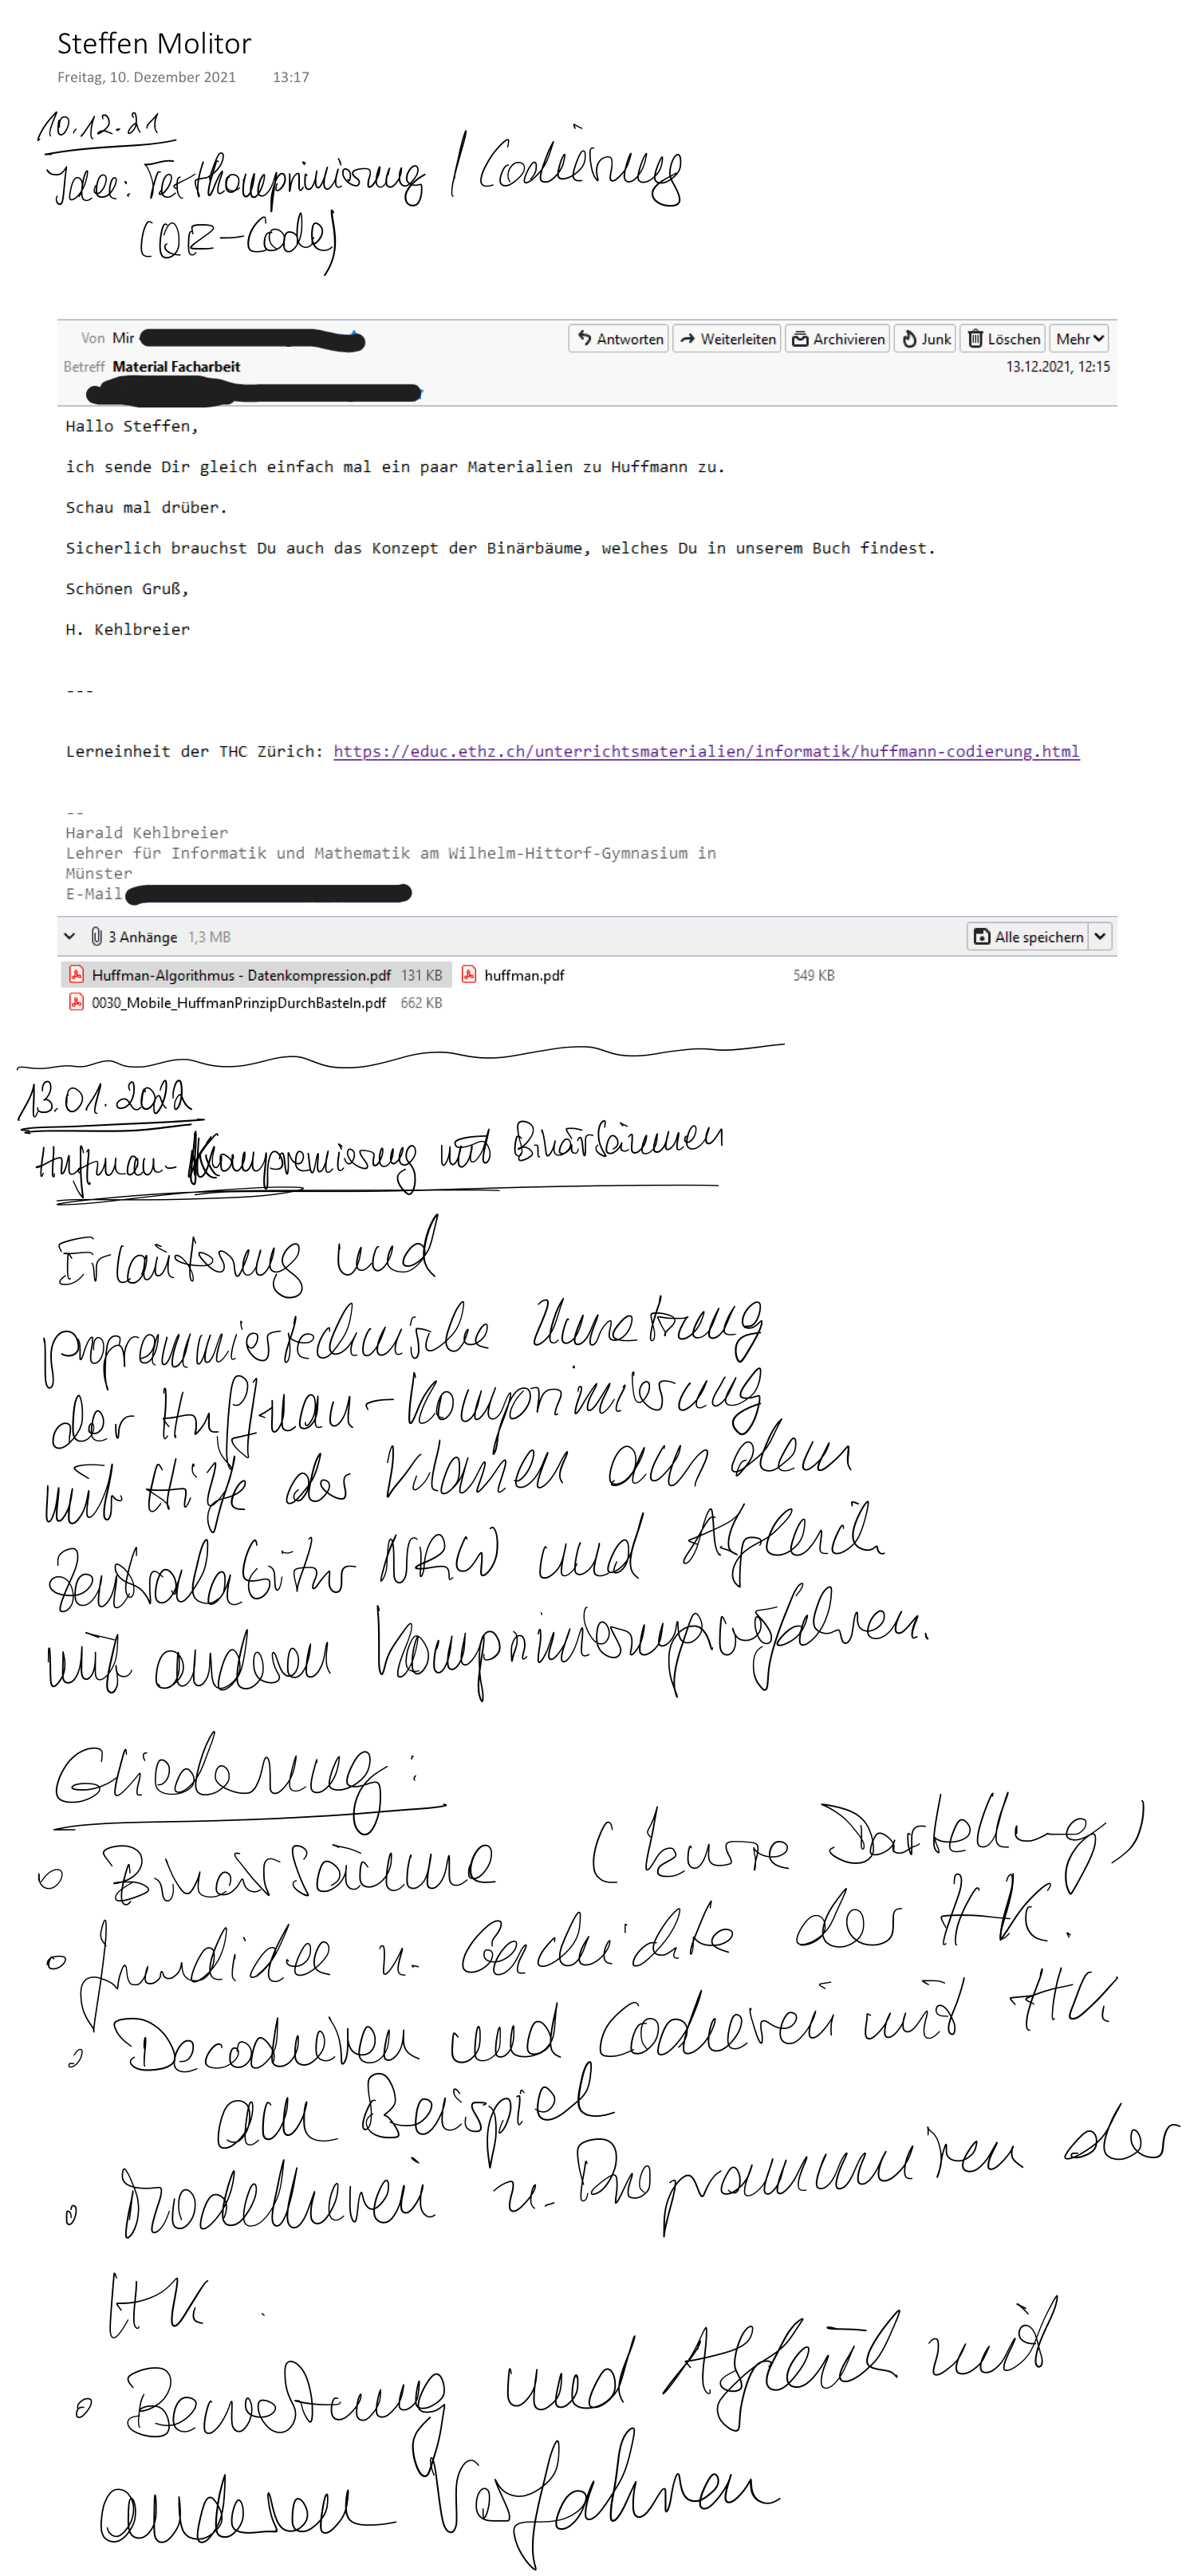 Steffen Molitor
Freitag, 10. Dezember 2021 13:17
10.12.21
Idee: Textkomprimierung / Codierung
(QR-Code)
Von Mir Antworten Weiterleiten Archivieren Junk Löschen Mehr
Betreff Material Facharbeit 13.12.2021, 12:15
Hallo Steffen,
ich sende Dir gleich einfach mal ein paar Materialien zu Huffmann zu.
Schau mal drüber.
Sicherlich brauchst Du auch das Konzept der Binärbäume, welches Du in unserem Buch findest.
Schönen Gruß,
H. Kehlbreier
---
Lerneinheit der THC Zürich: https://educ.ethz.ch/unterrichtsmaterialien/informatik/huffmann-codierung.html
--
Harald Kehlbreier
Lehrer für Informatik und Mathematik am Wilhelm-Hittorf-Gymnasium in
Münster
E-Mail
3 Anhänge 1,3 MB Alle speichern
Huffman-Algorithmus - Datenkompression.pdf 131 KB huffman.pdf 549 KB
0030_Mobile_HuffmanPrinzipDurchBasteln.pdf 662 KB
13.01.2022
Huffman-Kompremierung mit Binärbäumen
Erläuterung und
programmiertechnische Umsetzung
der Huffman-Komprimierung
mit Hilfe der Klassen aus dem
Zentralabitur NRW und Abgleich
mit anderen Komprimierungsverfahren.
Gliederung:
• Binärbäume (kurze Darstellung)
• Grundidee u. Geschichte der HK.
• Decodieren und Codieren mit HK
am Beispiel
• Modellieren u. Programmieren der
HK.
• Bewertung und Abgleich mit
anderen Verfahren